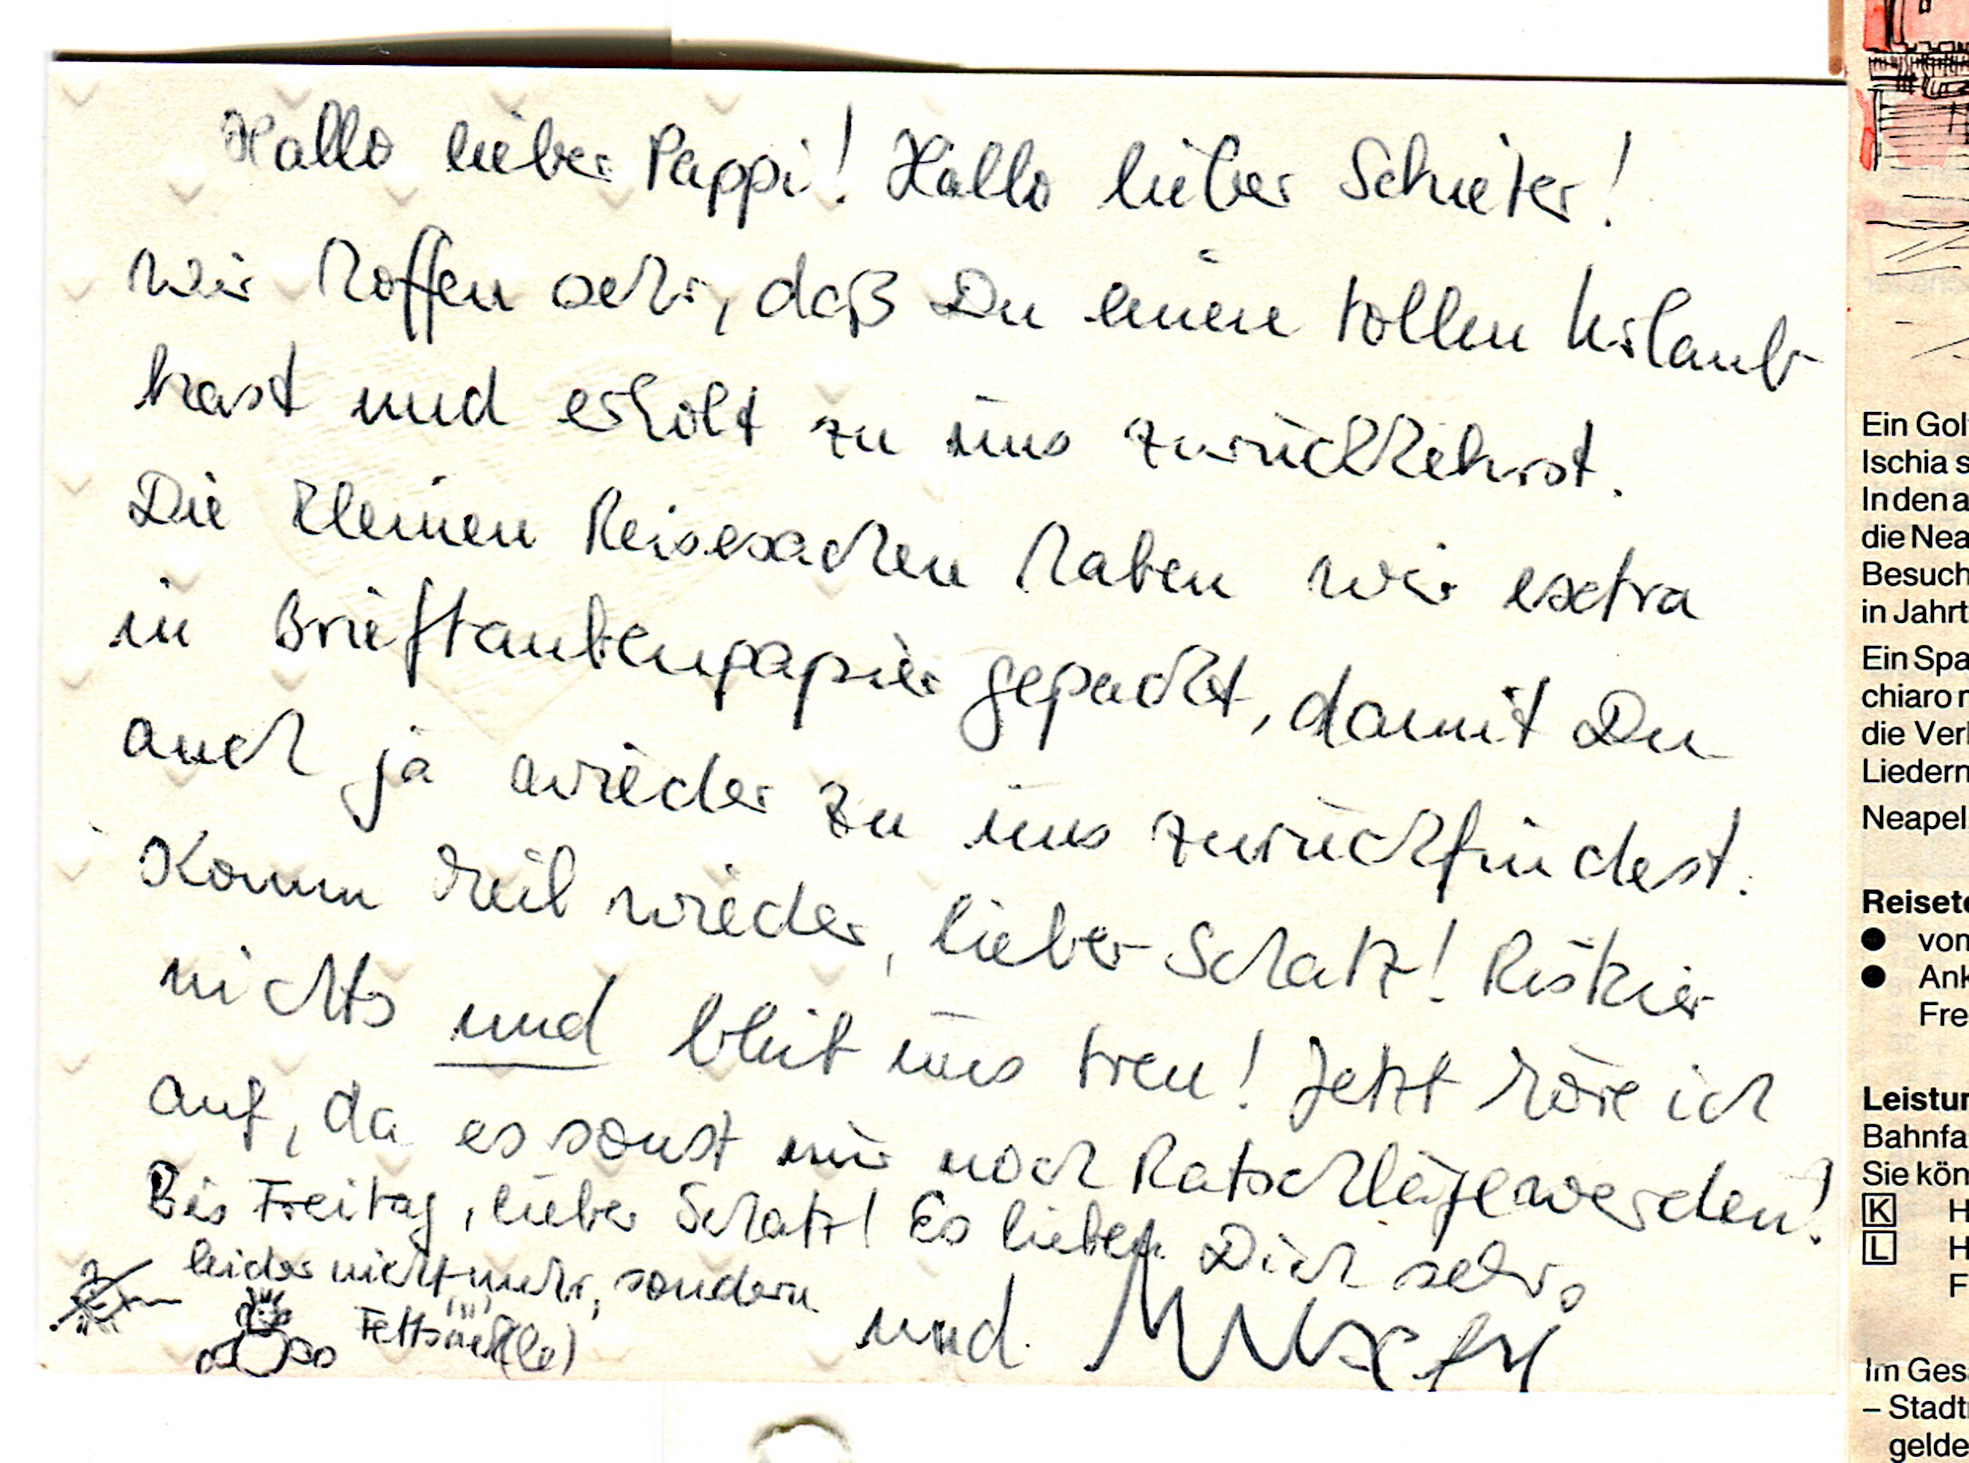 Hallo lieber Pappi! Hallo lieber Schieter!
Wir hoffen sehr, daß Du einen tollen Urlaub
hast und erholt zu uns zurückkehrst.
Die kleinen Reisesachen haben wir extra
in Brieftaubenpapier gepackt, damit Du
auch ja wieder zu uns zurückfindest.
Komm heil wieder, lieber Schatz! Riskier
nichts und bleib uns treu! Jetzt höre ich
auf, da es sonst nur noch Ratschläge werden!
Bis Freitag, lieber Schatz! Es lieben Dich sehr,
leider nicht mehr, sondern
und
Ein Gol
Ischia s
In den a
die Nea
Besuch
in Jahrt
Ein Spa
chiaro n
die Verl
Liedern
Neapel
Reisete
● von
● Ank
Fre
Leistun
Bahnfa
Sie kön
K H
L H
F
Im Gesa
– Stadtr
gelde